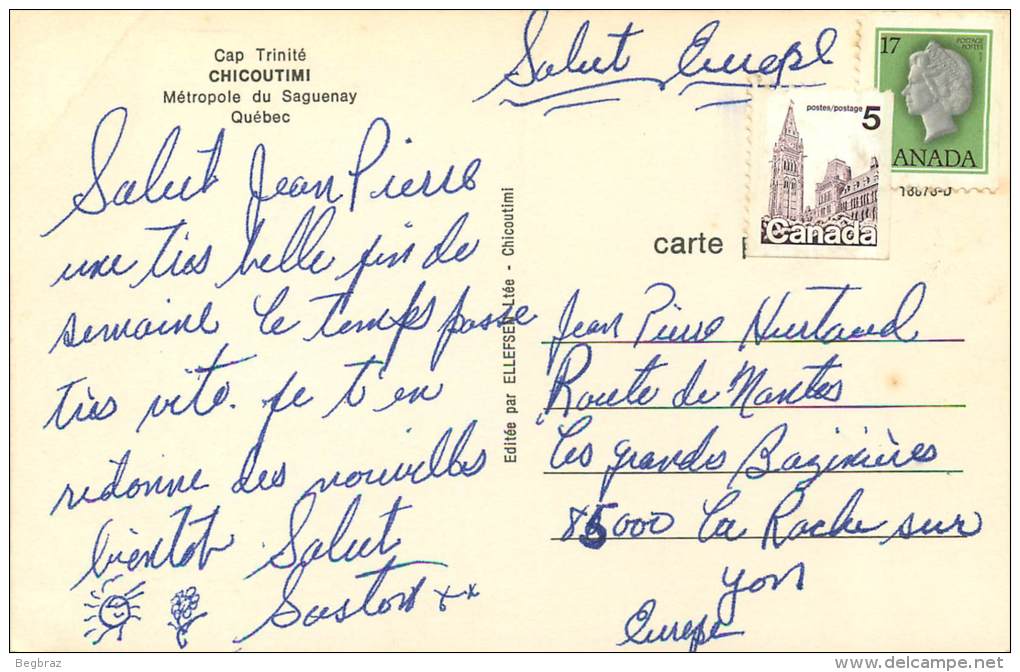 Cap Trinité
CHICOUTIMI
Métropole du Saguenay
Québec
Salut Europe
17
POSTAGE
POSTES
1
CANADA
postes/postage
5
Canada
18678-D
carte p
Salut Jean Pierre
une très belle fin de
semaine le temps passe
très vite. je t'en
redonne des nouvelles
bientot Salut
Gaston xx
Editée par ELLEFSEN Ltée - Chicoutimi
Jean Pierre Hurtaud
Route de Nantes
Les grandes
85000 La Roche sur
yon
Europe
Begbraz
delcampe.net